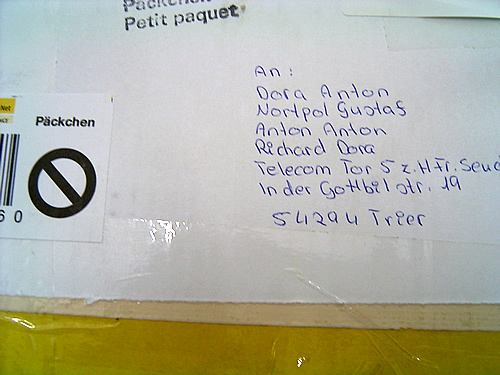 Päckchen
Petit paquet
Net
Päckchen
60
An:
Dora Anton
Nortpol Gustas
Anton Anton
Richard Dora
Telecom Tor 5 z.H Fr.
In der Gottbil str. 19
54294 Trier